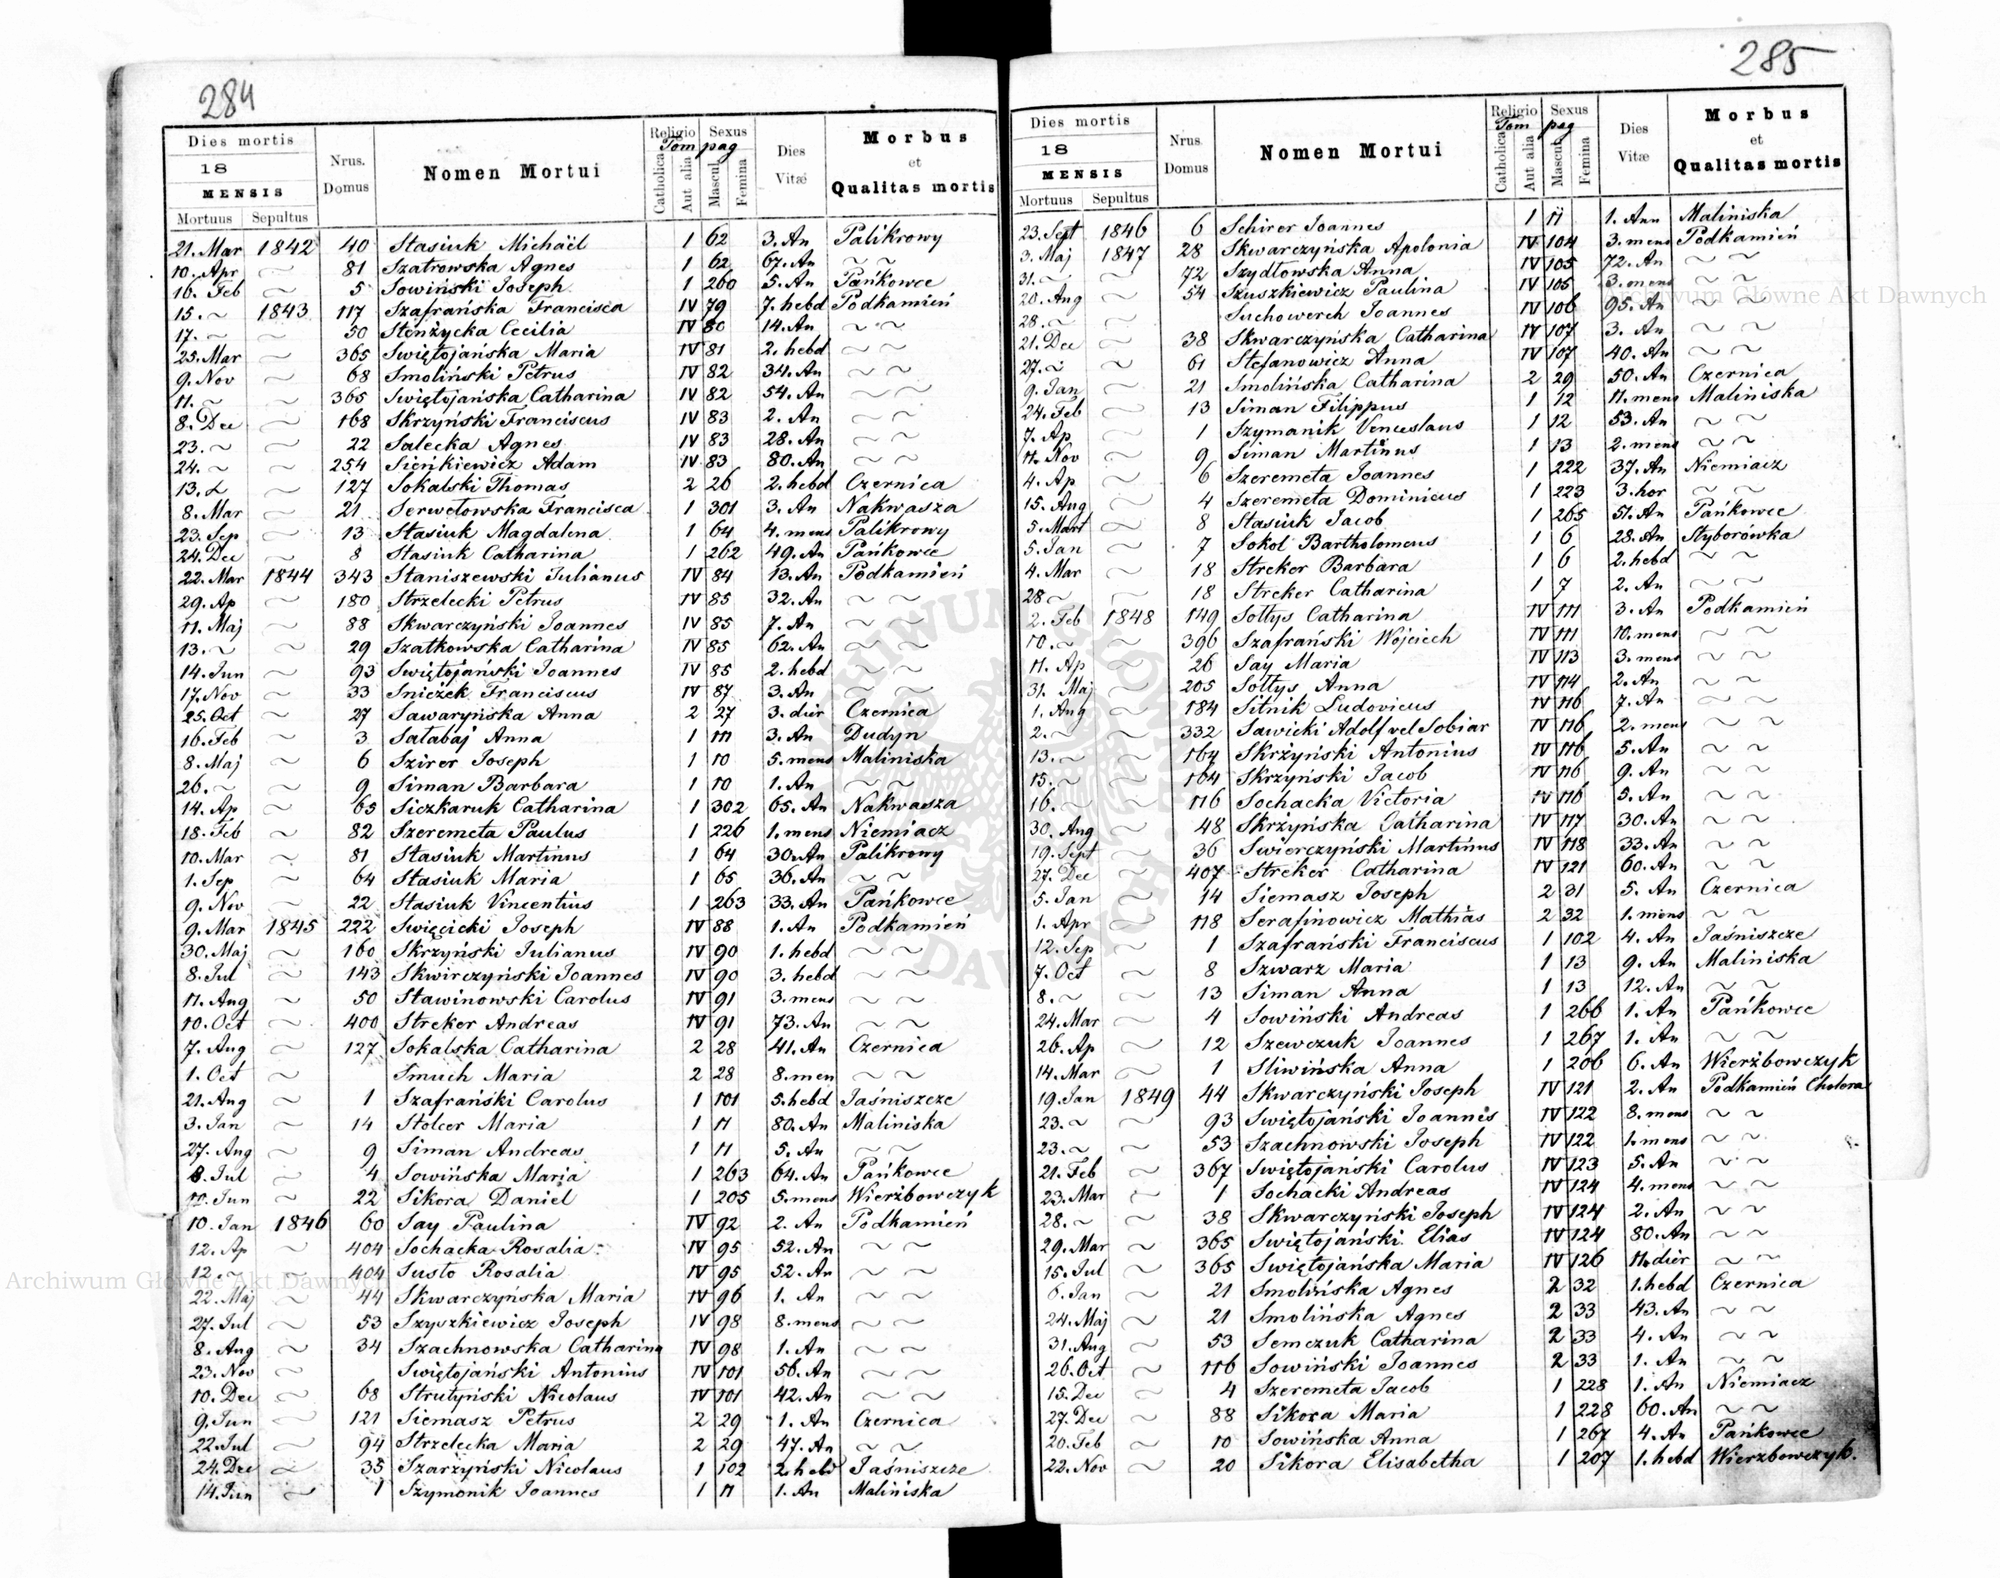 284
Dies mortis
18
MENSIS
Mortuus Sepultus
Nrus. Domus
Nomen Mortui
Religio Sexus
Tom pag
Catholica Aut alia Mascul. Femina
Dies Vitæ
Morbus et Qualitas mortis
21. Mar 1842 40 Stasiuk Michäel 1 62 3. An Palikrowy
10. Apr ~ 81 Szatrowska Agnes 1 62 67. An ~ ~
16. Feb ~ 5 Sowiński Joseph 1 260 5. An Pańkowce
15. ~ 1843 117 Szafrańska Francisca IV 79 7. hebd Podkamień
17. ~ ~ 50 Stenżycka Cecilia IV 80 14. An ~ ~
25. Mar ~ 365 Swiętojańska Maria IV 81 2. hebd ~ ~
9. Nov ~ 68 Smoliński Petrus IV 82 34. An ~ ~
11. ~ ~ 365 Swiętojańska Catharina IV 82 54. An ~ ~
8. Dec ~ 168 Skrzyński Franciscus IV 83 2. An ~ ~
23. ~ ~ 22 Salecka Agnes IV 83 28. An ~ ~
24. ~ ~ 254 Sieńkiewicz Adam IV 83 80. An ~ ~
13. ~ ~ 127 Sokalski Thomas 2 26 2. hebd Czernica
8. Mar ~ 21 Serwetowska Francisca 1 301 3. An Nakwasza
23. Sep ~ 13 Stasiuk Magdalena 1 64 4. mens Palikrowy
24. Dec ~ 8 Stasiuk Catharina 1 262 49. An Pańkowce
22. Mar 1844 343 Staniszewski Julianus IV 84 13. An Podkamień
29. Ap ~ 180 Strzelecki Petrus IV 85 32. An ~ ~
11. Maj ~ 88 Skwarczyński Joannes IV 85 7. An ~ ~
13. ~ ~ 29 Szatkowska Catharina IV 85 62. An ~ ~
14. Jun ~ 93 Swiętojański Joannes IV 85 2. hebd ~ ~
17. Nov ~ 33 Snieżek Franciscus IV 87 3. An ~ ~
25. Oct ~ 27 Sawaryńska Anna 2 27 3. dier Czernica
16. Feb ~ 3 Satabaj Anna 1 111 3. An Dudyn
8. Maj ~ 6 Szirer Joseph 1 10 5. mens Maliniska
26. ~ ~ 9 Siman Barbara 1 10 1. An ~ ~
14. Ap ~ 65 Siczkaruk Catharina 1 302 65. An Nakwasza
18. Feb ~ 82 Szeremeta Paulus 1 226 1. mens Niemiacz
10. Mar ~ 81 Stasiuk Martinus 1 64 30. An Palikrowy
1. Sep ~ 64 Stasiuk Maria 1 65 36. An ~ ~
9. Nov ~ 22 Stasiuk Vincentius 1 263 33. An Pańkowce
9. Mar 1845 222 Swięcicki Joseph IV 88 1. An Podkamień
30. Maj ~ 160 Skrzyński Julianus IV 90 1. hebd ~ ~
8. Jul ~ 143 Skwirczyński Joannes IV 90 3. hebd ~ ~
11. Aug ~ 50 Stawinowski Carolus IV 91 3. mens ~ ~
10. Oct ~ 400 Streker Andreas IV 91 73. An ~ ~
7. Aug ~ 127 Sokalska Catharina 2 28 41. An Czernica
1. Oct ~ Smuch Maria 2 28 8. men ~ ~
21. Aug ~ 1 Szafrański Carolus 1 101 5. hebd Jaśniszcze
3. Jan ~ 14 Stolcer Maria 1 11 80. An Maliniska
27. Aug ~ 9 Siman Andreas 1 11 5. An ~ ~
8. Jul ~ 4 Sowińska Maria 1 263 64. An Pańkowce
Jun ~ 22 Sikora Daniel 1 205 5. mens Wierzbowczyk
10. Jan 1846 60 Say Paulina IV 92 2. An Podkamień
12. Ap ~ 404 Sochacka Rosalia IV 95 52. An ~ ~
12. ~ ~ 404 Susto Rosalia IV 95 52. An ~ ~
22. Maj ~ 44 Skwarczyńska Maria IV 96 1. An ~ ~
27. Jul ~ 53 Szyszkiewicz Joseph IV 98 8. mens ~ ~
8. Aug ~ 34 Szachnowska Catharina IV 98 1. An ~ ~
23. Nov ~ Swiętojański Antonius IV 101 56. An ~ ~
10. Dec ~ 68 Strutyński Nicolaus IV 101 42. An ~ ~
9. Jun ~ 121 Siemasz Petrus 2 29 1. An Czernica
22. Jul ~ 94 Strzelecka Maria 2 29 47. An ~ ~
24. Dec ~ 35 Szarzyński Nicolaus 1 102 2. hebd Jaśniszcze
14. Jun ~ 1 Szymonik Joannes 1 11 1. An Maliniska
285
Dies mortis
18
MENSIS
Mortuus Sepultus
Nrus. Domus
Nomen Mortui
Religio Sexus
Tom pag
Catholica Aut alia Mascul. Femina
Dies Vitæ
Morbus et Qualitas mortis
23. Sept 1846 6 Schirer Joannes 1 11 1. Ann Maliniska
3. Maj 1847 28 Skwarczyńska Apolonia IV 104 3. mens Podkamień
31. ~ ~ 72 Szydłowska Anna IV 105 72. An ~ ~
20. Aug ~ 54 Szuszkiewicz Paulina IV 105 3. mens ~ ~
28. ~ ~ Suchowerch Joannes IV 106 95. An ~ ~
21. Dec ~ 38 Skwarczyńska Catharina IV 107 3. An ~ ~
27. ~ ~ 61 Stefanowicz Anna IV 107 40. An ~ ~
9. Jan ~ 21 Smolińska Catharina 2 29 50. An Czernica
24. Feb ~ 13 Siman Filippus 1 12 11. mens Maliniska
7. Ap ~ 1 Szymanik Venceslaus 1 12 53. An ~ ~
11. Nov ~ 9 Siman Martinus 1 13 2. mens ~ ~
4. Ap ~ 6 Szeremeta Joannes 1 222 37. An Niemiacz
15. Aug ~ 4 Szeremeta Dominicus 1 223 3. hor ~ ~
5. Mart ~ 8 Stasiuk Jacob 1 265 51. An Pańkowce
5. Jan ~ 7 Sokol Bartholomeus 1 6 28. An Styborówka
4. Mar ~ 18 Streker Barbara 1 6 2. hebd ~ ~
28 ~ ~ 18 Streker Catharina 1 7 2. An ~ ~
2. Feb 1848 149 Sołtys Catharina IV 111 3. An Podkamień
10. ~ ~ 396 Szafrański Wojciech IV 111 10. mens ~ ~
11. Ap ~ 26 Say Maria IV 113 3. mens ~ ~
31. Maj ~ 205 Sołtys Anna IV 114 2. An ~ ~
1. Aug ~ 184 Sitnik Ludovicus IV 116 7. An ~ ~
2. ~ ~ 332 Sawicki Adolf vel Sobiar IV 116 2. mens ~ ~
13. ~ ~ 164 Skrzyński Antonius IV 116 5. An ~ ~
15. ~ ~ 164 Skrzyński Jacob IV 116 9. An ~ ~
16. ~ ~ 116 Sochacka Victoria IV 116 5. An ~ ~
30. Aug ~ 48 Skrżyńska Catharina IV 117 30. An ~ ~
19. Sept ~ 36 Swierczyński Martinus IV 118 33. An ~ ~
27. Dec ~ 407 Streker Catharina IV 121 60. An ~ ~
5. Jan ~ 14 Siemasz Joseph 2 31 5. An Czernica
1. Apr ~ 118 Serafinowicz Mathias 2 32 1. mens ~ ~
12. Sep ~ 1 Szafrański Franciscus 1 102 4. An Jaśniszcze
7. Oct ~ 8 Szwarz Maria 1 13 9. An Maliniska
8. ~ ~ 13 Siman Anna 1 13 12. An ~ ~
24. Mar ~ 4 Sowiński Andreas 1 266 1. An Pańkowce
26. Ap ~ 12 Szewczuk Joannes 1 267 1. An ~ ~
14. Mar ~ 1 Sliwińska Anna 1 206 6. An Wierżbowczyk
19. Jan 1849 44 Skwarczyński Joseph IV 121 2. An Podkamień Cholera
23. ~ ~ 93 Swiętojański Joannes IV 122 8. mens ~ ~
23. ~ ~ 53 Szachnowski Joseph IV 122 1. mens ~ ~
21. Feb ~ 367 Swiętojański Carolus IV 123 5. An ~ ~
23. Mar ~ 1 Sochacki Andreas IV 124 4. mens ~ ~
28. ~ ~ 38 Skwarczyński Joseph IV 124 2. An ~ ~
29. Mar ~ 365 Swiętojański Elias IV 124 80. An ~ ~
15. Jul ~ 365 Swiętojańska Maria IV 126 11. dier ~ ~
6. Jan ~ 21 Smolińska Agnes 2 32 1. hebd Czernica
24. Maj ~ 21 Smolińska Agnes 2 33 43. An ~ ~
31. Aug ~ 53 Semczuk Catharina 2 33 4. An ~ ~
26. Oct ~ 116 Sowiński Joannes 2 33 1. An ~ ~
15. Dec ~ 4 Szeremeta Jacob 1 228 1. An Niemiacz
27. Dec ~ 88 Sikora Maria 1 228 60. An ~ ~
20. Feb ~ 10 Sowińska Anna 1 267 4. An Pańkowce
22. Nov ~ 20 Sikora Elisabetha 1 207 1. hebd Wierzbowczyk.
Archiwum Główne Akt Dawnych
Archiwum Główne Akt Dawnych
ARCHIWUM GŁÓWNE AKT DAWNYCH